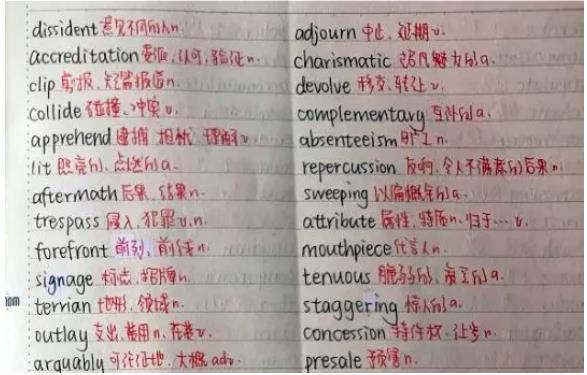 dissident 意见不同的人n.
accreditation 委派、认可、验证n.
clip 剪报、短篇报道n.
collide 碰撞、冲突v.
apprehend 逮捕 担忧 理解v.
lit 照亮的、点燃的a.
aftermath 后果、结果n.
trespass 侵入、犯罪v.n.
forefront 前列、前线n.
signage 标志、招牌n.
terrian 地形、领域n.
outlay 支出、费用n.花费v.
arguably 可论证地、大概adv.
adjourn 中止、延期v.
charismatic 超凡魅力的a.
devolve 移交、转让v.
complementary 互补的a.
absenteeism 旷工n.
repercussion 反响、令人不满意的后果n.
sweeping 以偏概全的a.
attribute 属性、特质n.归于…v.
mouthpiece 代言人n.
tenuous 脆弱的、的a.
staggering 惊人的a.
concession 特许权、让步n.
presale 预售n.